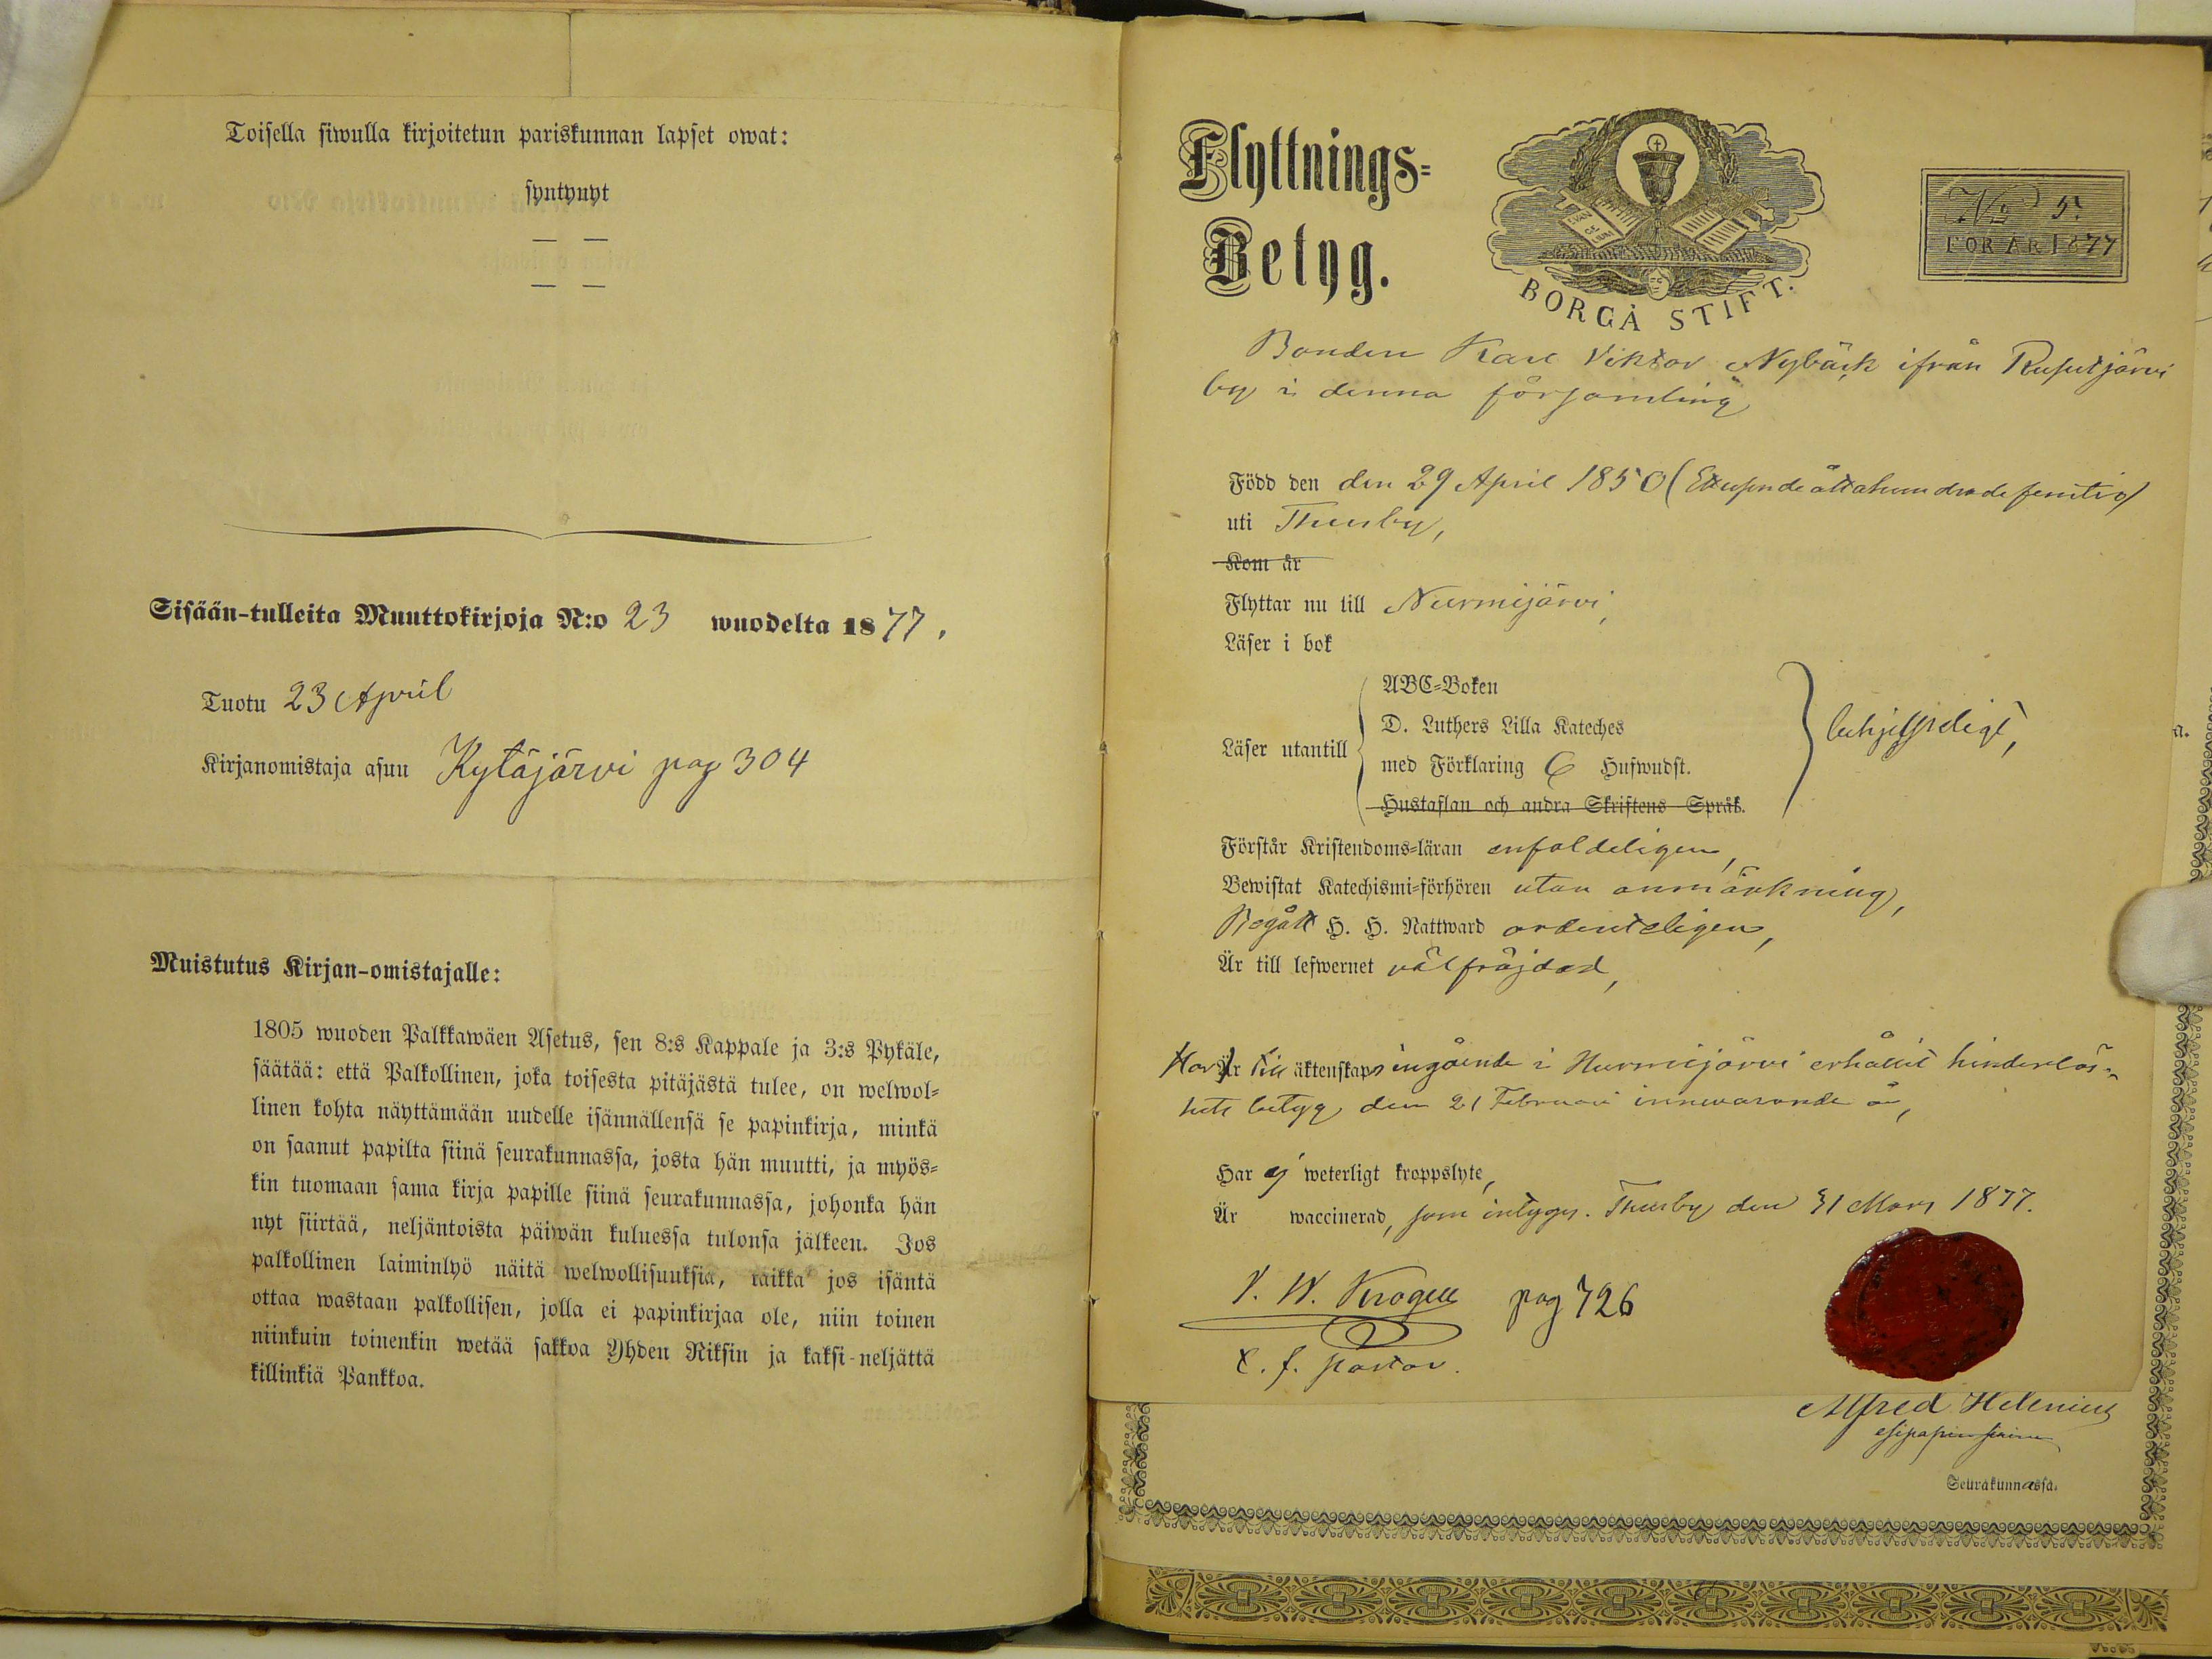 Toisella siwulla kirjoitetun pariskunnan lapset owat:
syntynyt
— —
— —
Sisään-tulleita Muuttokirjoja N:o 23 wuodelta 1877.
Tuotu 23 April
Kirjanomistaja asuu Kytäjärvi pag 304
Muistutus Kirjan-omistajalle:
1805 wuoden Palkkawäen Asetus, sen 8:s Kappale ja 3:s Pykäle,
säätää: että Palkollinen, joka toisesta pitäjästä tulee, on welwol-
linen kohta näyttämään uudelle isännällensä se papinkirja, minkä
on saanut papilta siinä seurakunnassa, josta hän muutti, ja myös-
kin tuomaan sama kirja papille siinä seurakunnassa, johonka hän
nyt siirtää, neljäntoista päiwän kuluessa tulonsa jälkeen. Jos
palkollinen laiminlyö näitä welwollisuuksia, taikka jos isäntä
ottaa wastaan palkollisen, jolla ei papinkirjaa ole, niin toinen
niinkuin toinenkin wetää sakkoa Yhden Riksin ja kaksi-neljättä
killinkiä Pankkoa.
Flyttnings-
Betyg.
EVAN
GE
LIUM
BORGÅ STIFT.
No 5.
FÖR ÅR 1877
Bonden Karl Viktor Nybäck ifrån Rusutjärvi
by i denna församling
Född den den 29 April 1850 (Ettusende åttahundrade femtio)
uti Thusby,
Kom år
Flyttar nu till Nurmijärvi,
Läser i bok
ABC-Boken
D. Luthers Lilla Kateches
Läser utantill
med Förklaring 6 Hufwudst.
Hustaflan och andra Skriftens Språk.
behjelpeligt,
Förstår Kristendoms-läran enfaldeligen,
Bewistat Katechismi-förhören utan anmärkning,
Begått H. H. Nattward ordenteligen,
Är till lefwernet välfräjdad,
Har Är till äktenskaps ingående i Nurmijärvi erhållit hinderlös-
hets betyg den 21 Februari innevarande år,
Har ej weterligt kroppslyte,
Är waccinerad, som intygas. Thusby den 31 Mars 1877.
V. W. Krogell pag 726
t. f. pastor.
Alfred Helenius
Seurakunnassa.